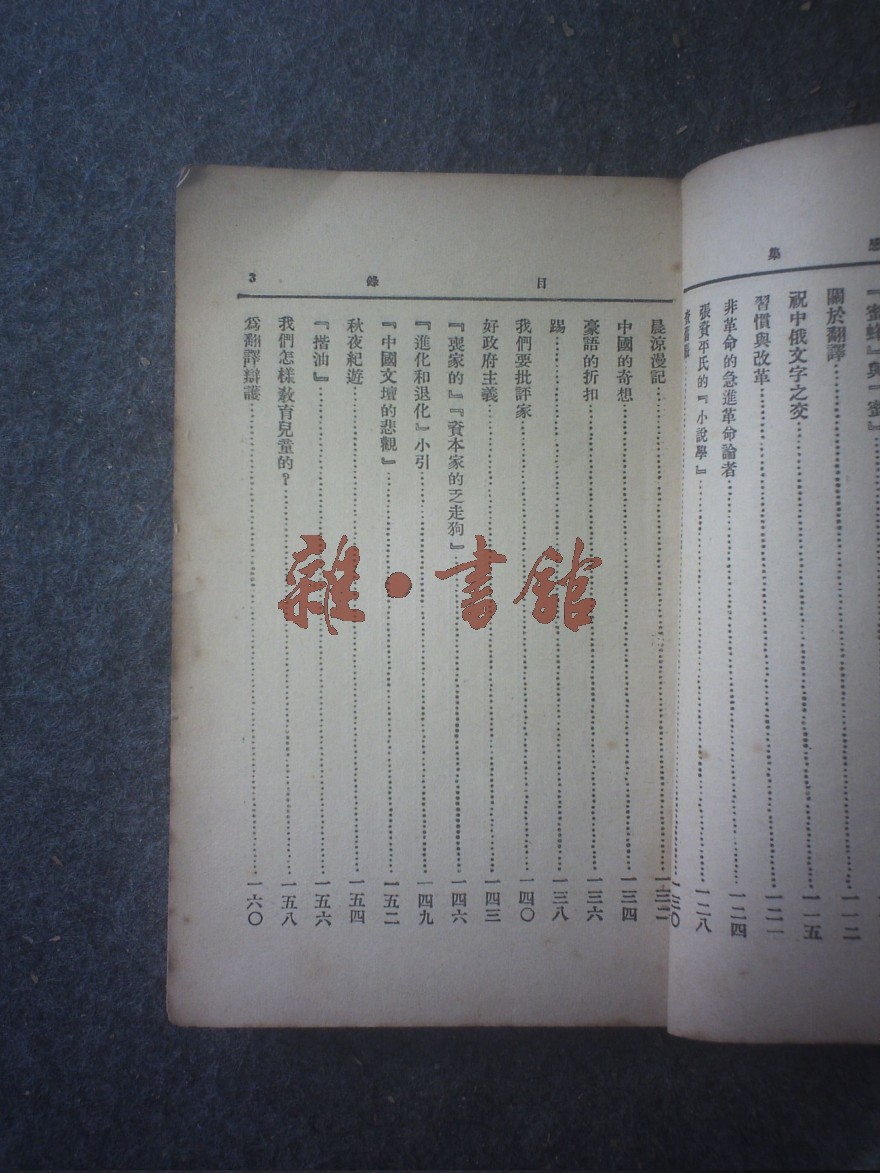 集
『蜜蜂』與『蜜』
關於翻譯……一一二
祝中俄文字之交……一一五
習慣與改革……一二一
非革命的急進革命論者……一二四
張資平氏的『小說學』……一二八
……一三〇
目錄 3
晨涼漫記……一三二
中國的奇想……一三四
豪語的折扣……一三六
踢……一三八
我們要批評家……一四〇
好政府主義……一四三
『喪家的』『資本家的乏走狗』……一四六
『進化和退化』小引……一四九
『中國文壇的悲觀』……一五二
秋夜紀遊……一五四
『揩油』……一五六
我們怎樣敎育兒童的？……一五八
爲翻譯辯護……一六〇
雜·書館